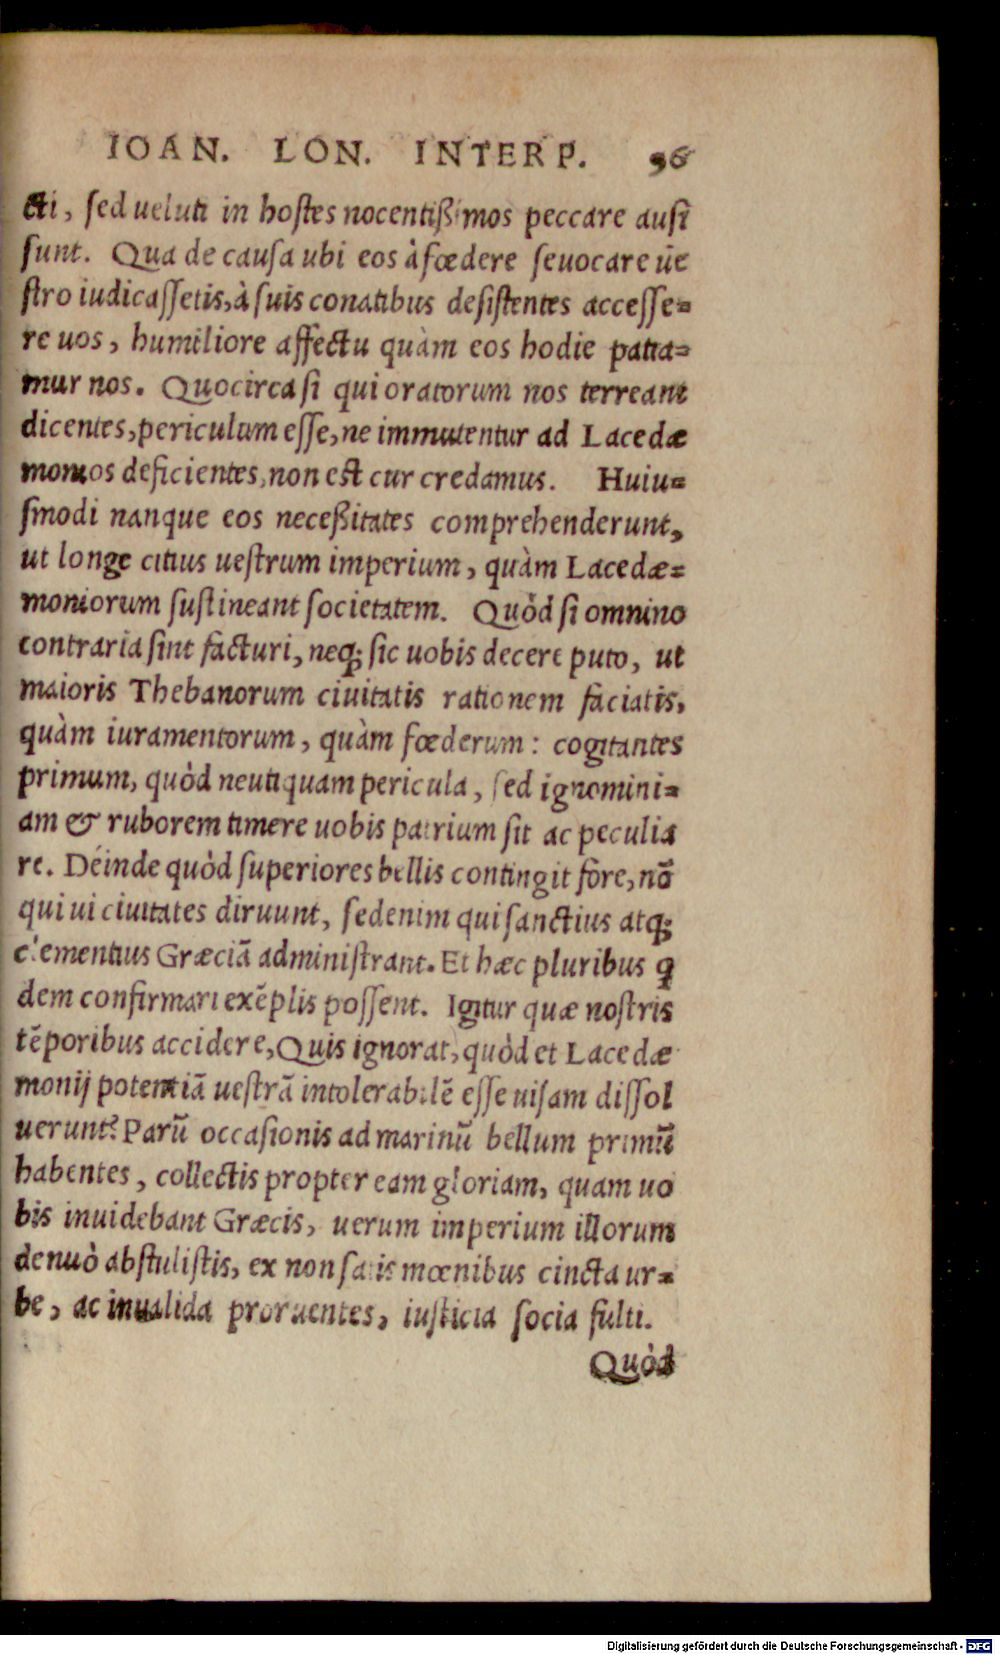 IOAN. LON. INTERP. 96
cti, sed ueluti in hostes nocentißimos peccare ausi
sunt. Qua de causa ubi eos à fœdere seuocare ūe
stro iudicassetis, à suis conatibus desistentes accesse=
re uos, humiliore affectu quàm eos hodie patia=
mur nos. Quocirca si qui oratorum nos terreant
dicentes, periculum esse, ne immutentur ad Lacedæ
monios deficientes, non est cur credamus. Huiu=
smodi nanque eos neceßitates comprehenderunt,
ut longe citius uestrum imperium, quàm Lacedæ=
moniorum sustineant societatem. Quòd si omnino
contraria sint facturi, neq; sic uobis decere puto, ut
maioris Thebanorum ciuitatis rationem faciatis,
quàm iuramentorum, quàm fœderum: cogitantes
primum, quòd neutiquam pericula, sed ignomini=
am & ruborem timere uobis patrium sit ac peculia
re. Déinde quòd superiores bellis contingit fore, nō
qui ui ciuitates diruunt, sed enim qui sanctius atq;
clementius Græciā administrant. Et hæc pluribus q
dem confirmari exēplis possent. Igitur quæ nostris
tēporibus accidere, Quis ignorat, quòd et Lacedæ
monij potentiā uestrā intolerabilē esse uisam dissol
uerunt? Parū occasionis ad marinū bellum primū
habentes, collectis propter eam gloriam, quam uo
bis inuidebant Græcis, uerum imperium illorum
denuò abstulistis, ex non satis mœnibus cincta ur=
be, ac inualida proruentes, iusticia socia fulti.
Quòd
Digitalisierung gefördert durch die Deutsche Forschungsgemeinschaft - DFG